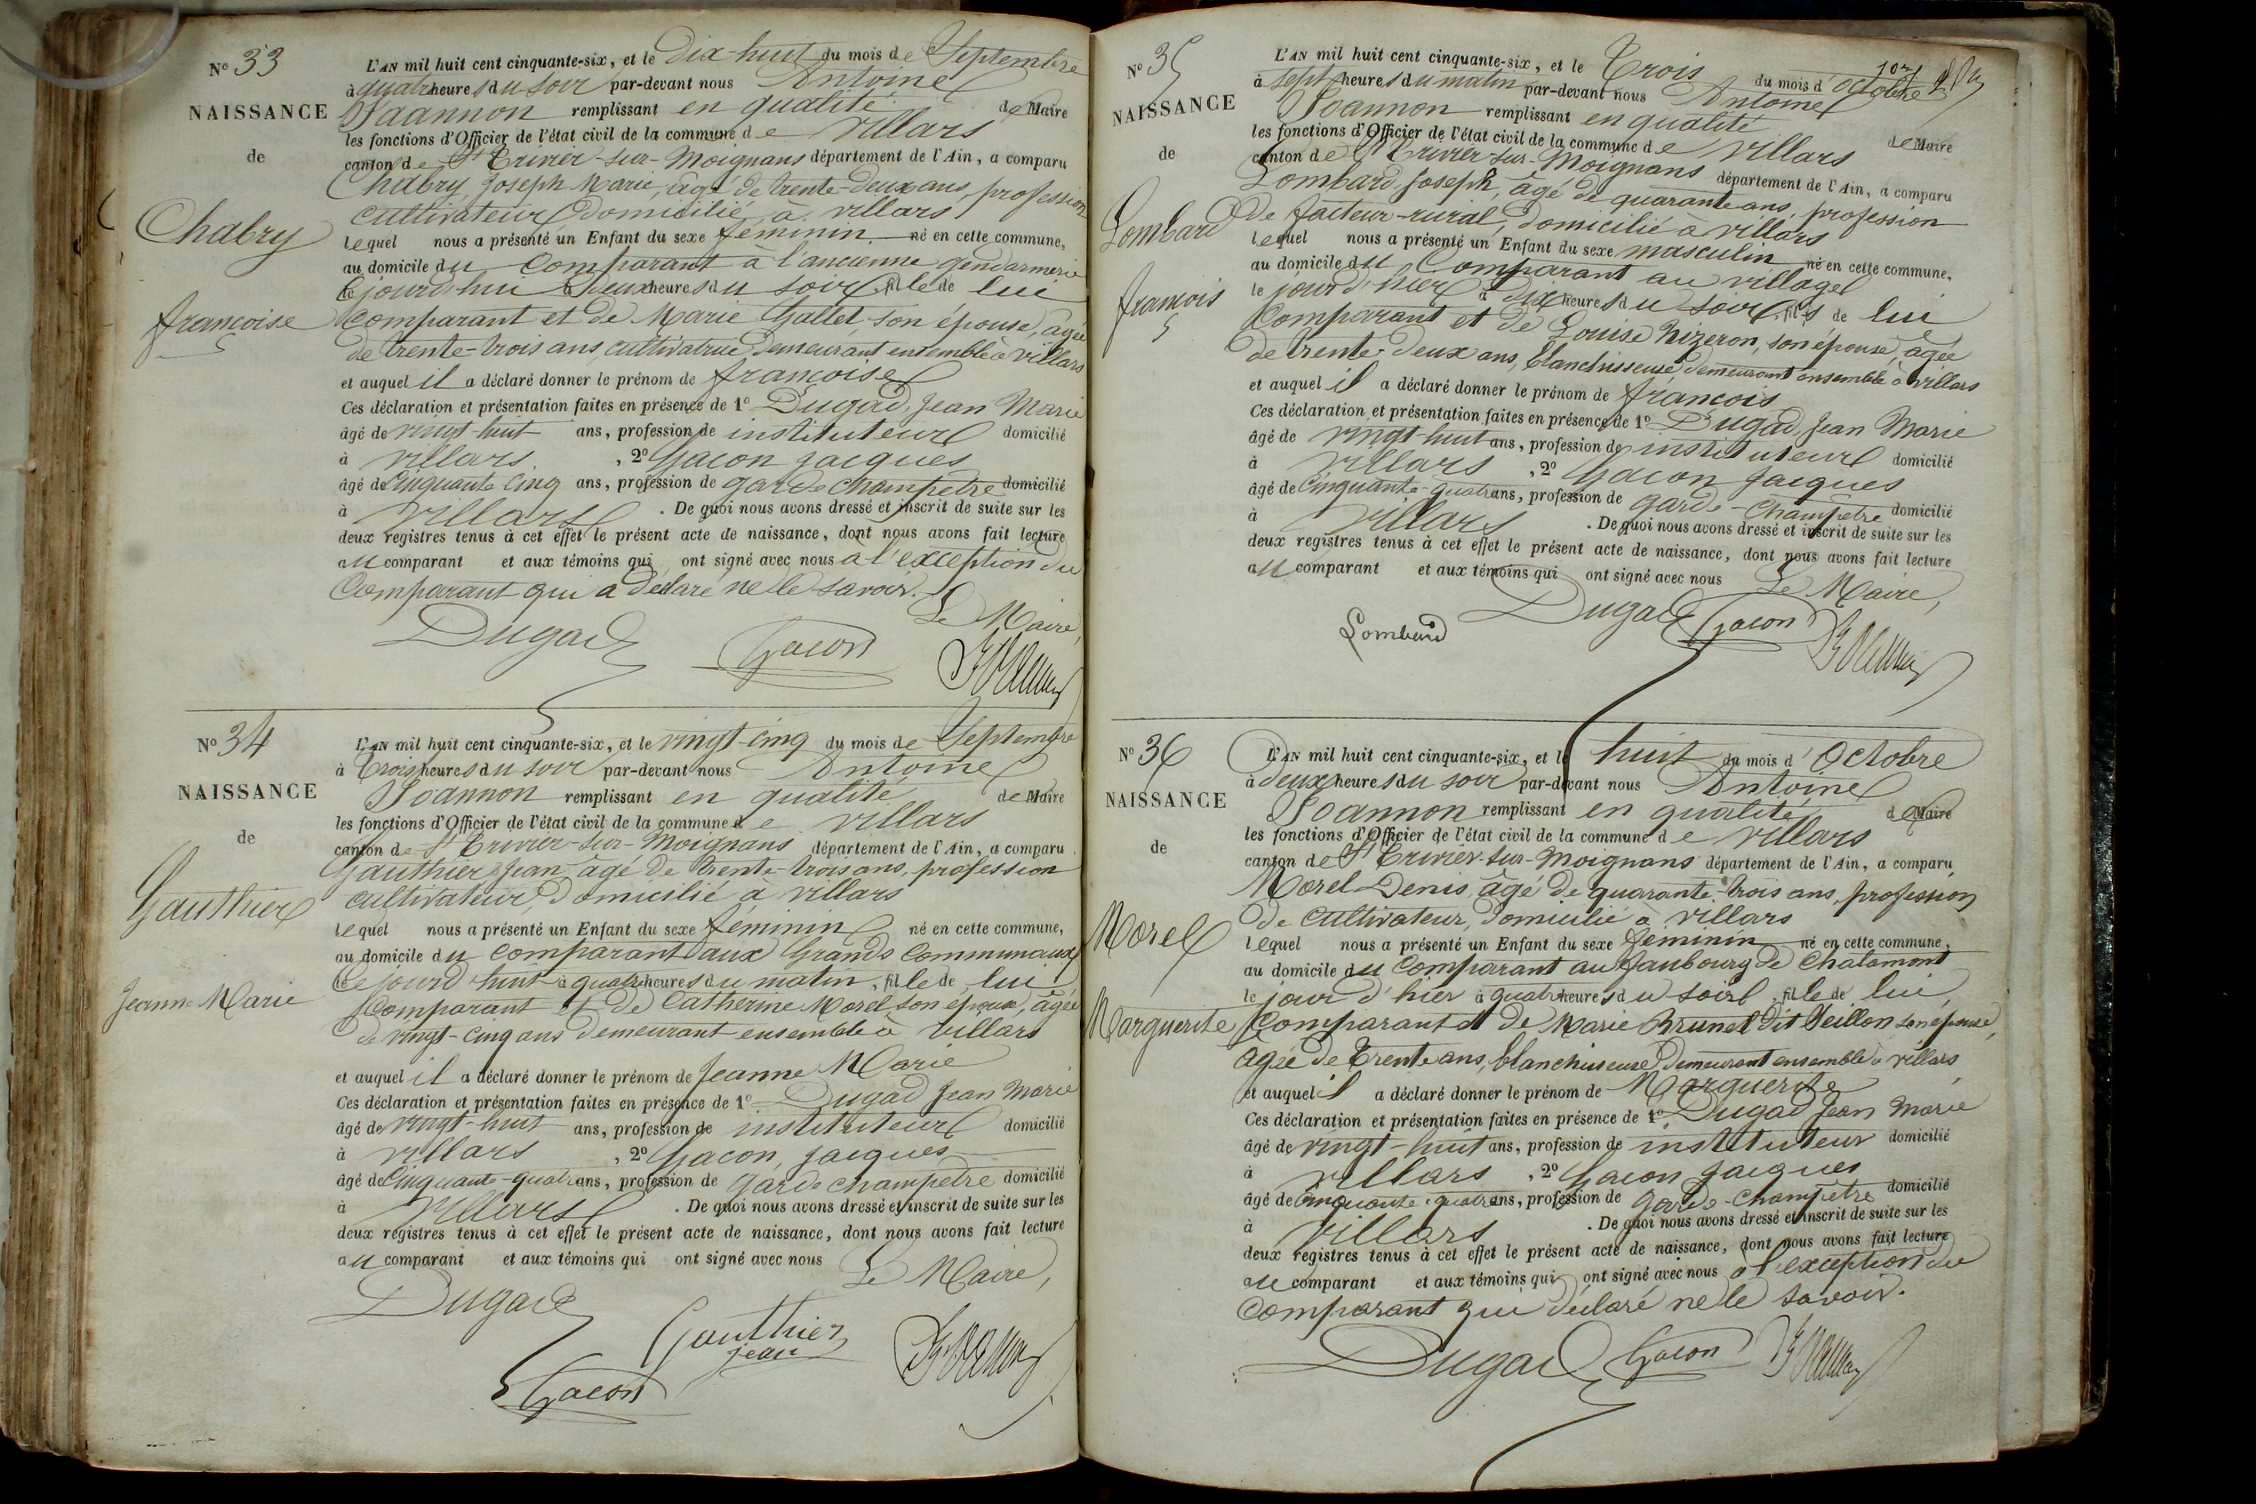 N° 33
NAISSANCE
de
Chabry
françoise
L'AN mil huit cent cinquante-six, et le Dix-huit du mois de Septembre
à quatre heures du soir par-devant nous Antoine
Joannon remplissant en qualité de Maire
les fonctions d'Officier de l'état civil de la commune de Villars
canton de St Trivier-sur-Moignans département de l'Ain, a comparu
Chabry Joseph Marie, âgé de trente-deux ans, profession
cultivateur, domicilié à villars
lequel nous a présenté un Enfant du sexe féminin né en cette commune,
au domicile du comparant à l'ancienne gendarmerie
ce jourd'hui à deux heures du soir, fille de lui
comparant et de Marie Gallet, son épouse, âgée
de trente-trois ans, cultivatrice demeurant ensemble à villars
et auquel il a déclaré donner le prénom de françoise
Ces déclaration et présentation faites en présence de 1° Dugad, Jean Marie
âgé de vingt-huit ans, profession de instituteur domicilié
à villars, 2° Gacon Jacques
âgé de cinquante cinq ans, profession de garde champêtre domicilié
à Villars. De quoi nous avons dressé et inscrit de suite sur les
deux registres tenus à cet effet le présent acte de naissance, dont nous avons fait lecture
au comparant et aux témoins qui ont signé avec nous à l'exception du
Comparant qui a déclaré ne le savoir.
Le Maire,
Dugad Gacon
N° 34
NAISSANCE
de
Gauthier
Jeanne Marie
L'AN mil huit cent cinquante-six, et le vingt-cinq du mois de Septembre
à Trois heures du soir par-devant nous Antoine
Joannon remplissant en qualité de Maire
les fonctions d'Officier de l'état civil de la commune de villars
canton de St Trivier-sur-Moignans département de l'Ain, a comparu
Gauthier Jean âgé de trente-trois ans, profession
cultivateur, domicilié à villars
lequel nous a présenté un Enfant du sexe féminin né en cette commune,
au domicile du comparant aux Grands Communaux
ce jourd'huit à quatre heures du matin, fille de lui
Comparant et de Catherine Morel son épouse, âgée
de vingt-cinq ans demeurant ensemble à villars
et auquel il a déclaré donner le prénom de Jeanne Marie
Ces déclaration et présentation faites en présence de 1° Dugad Jean Marie
âgé de vingt-huit ans, profession de instituteur domicilié
à villars, 2° Gacon, Jacques
âgé de cinquante-quatre ans, profession de garde champêtre domicilié
à Villars. De quoi nous avons dressé et inscrit de suite sur les
deux registres tenus à cet effet le présent acte de naissance, dont nous avons fait lecture
au comparant et aux témoins qui ont signé avec nous
Le Maire,
Dugad
Gauthier
jean
Gacon
N° 35
NAISSANCE
de
Lombard
françois
L'AN mil huit cent cinquante-six, et le Trois du mois d'octobre
à sept heures du matin par-devant nous Antoine
Joannon remplissant en qualité de Maire
les fonctions d'Officier de l'état civil de la commune de Villars
canton de St Trivier-sur-Moignans département de l'Ain, a comparu
Lombard Joseph, âgé de quarante ans, profession
de facteur-rural, domicilié à villars
lequel nous a présenté un Enfant du sexe masculin né en cette commune,
au domicile du Comparant au village
le jour d'hier à Dix heures du soir, fils de lui
Comparant et de Louise Nizeron, son épouse, âgée
de trente-deux ans, blanchisseuse demeurant ensemble à villars
et auquel il a déclaré donner le prénom de françois
Ces déclaration et présentation faites en présence de 1° Dugad, Jean Marie
âgé de vingt-huit ans, profession de instituteur domicilié
à Villars, 2° Gacon Jacques
âgé de cinquante-quatre ans, profession de garde-champêtre domicilié
à Villars. De quoi nous avons dressé et inscrit de suite sur les
deux registres tenus à cet effet le présent acte de naissance, dont nous avons fait lecture
au comparant et aux témoins qui ont signé avec nous
Le Maire,
Lombard Dugad Gacon
N° 36
NAISSANCE
de
Morel
Marguerite
L'AN mil huit cent cinquante-six, et le huit du mois d'Octobre
à deux heures du soir par-devant nous Antoine
Joannon remplissant en qualité de Maire
les fonctions d'Officier de l'état civil de la commune de Villars
canton de St Trivier-sur-Moignans département de l'Ain, a comparu
Morel Denis, âgé de quarante-trois ans, profession
de cultivateur, domicilié à villars
lequel nous a présenté un Enfant du sexe féminin né en cette commune,
au domicile du comparant au faubourg de Chalamont
le jour d'hier à quatre heures du soir, fille de lui
Comparant et de Marie Brunet dit Veillon son épouse,
âgée de Trente ans, blanchisseuse demeurant ensemble à villars
et auquel il a déclaré donner le prénom de Marguerite
Ces déclaration et présentation faites en présence de 1° Dugad Jean Marie
âgé de vingt-huit ans, profession de instituteur domicilié
à villars, 2° Gacon Jacques
âgé de cinquante-quatre ans, profession de garde-champêtre domicilié
à Villars. De quoi nous avons dressé et inscrit de suite sur les
deux registres tenus à cet effet le présent acte de naissance, dont nous avons fait lecture
au comparant et aux témoins qui ont signé avec nous à l'exception du
Comparant qui déclaré ne le savoir.
Dugad Gacon